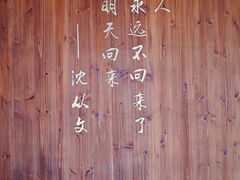 人
永远不回来了
明天回来
——沈从文